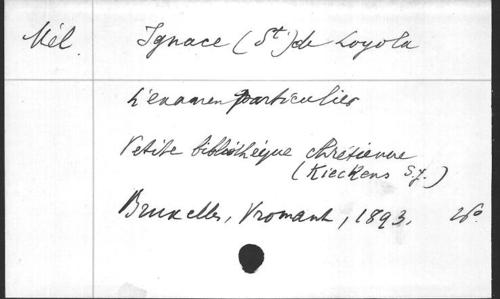 Mél. Ignace (St) de Loyola
L'examen particulier
Petite bibliothèque chrétienne
(Kieckens S.J.)
Bruxelles, Vromant, 1893.